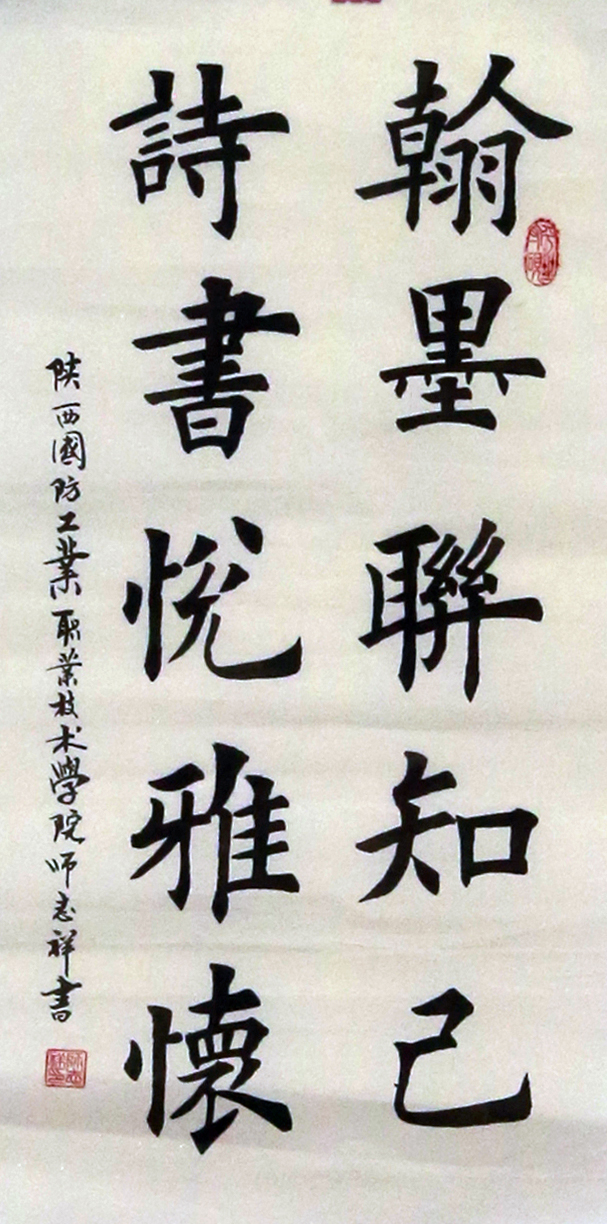 翰墨聯知己
詩書悅雅懷
陕西國防工業职業技术學院师志祥書